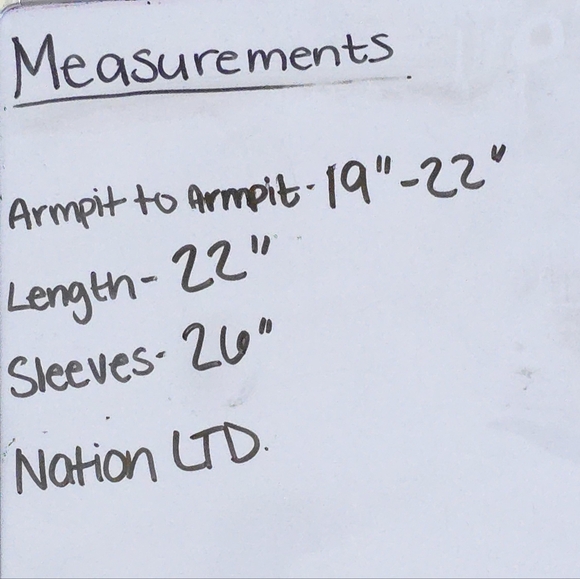 Measurements
Armpit to Armpit - 19" - 22"
Length - 22"
Sleeves - 26"
Nation LTD.